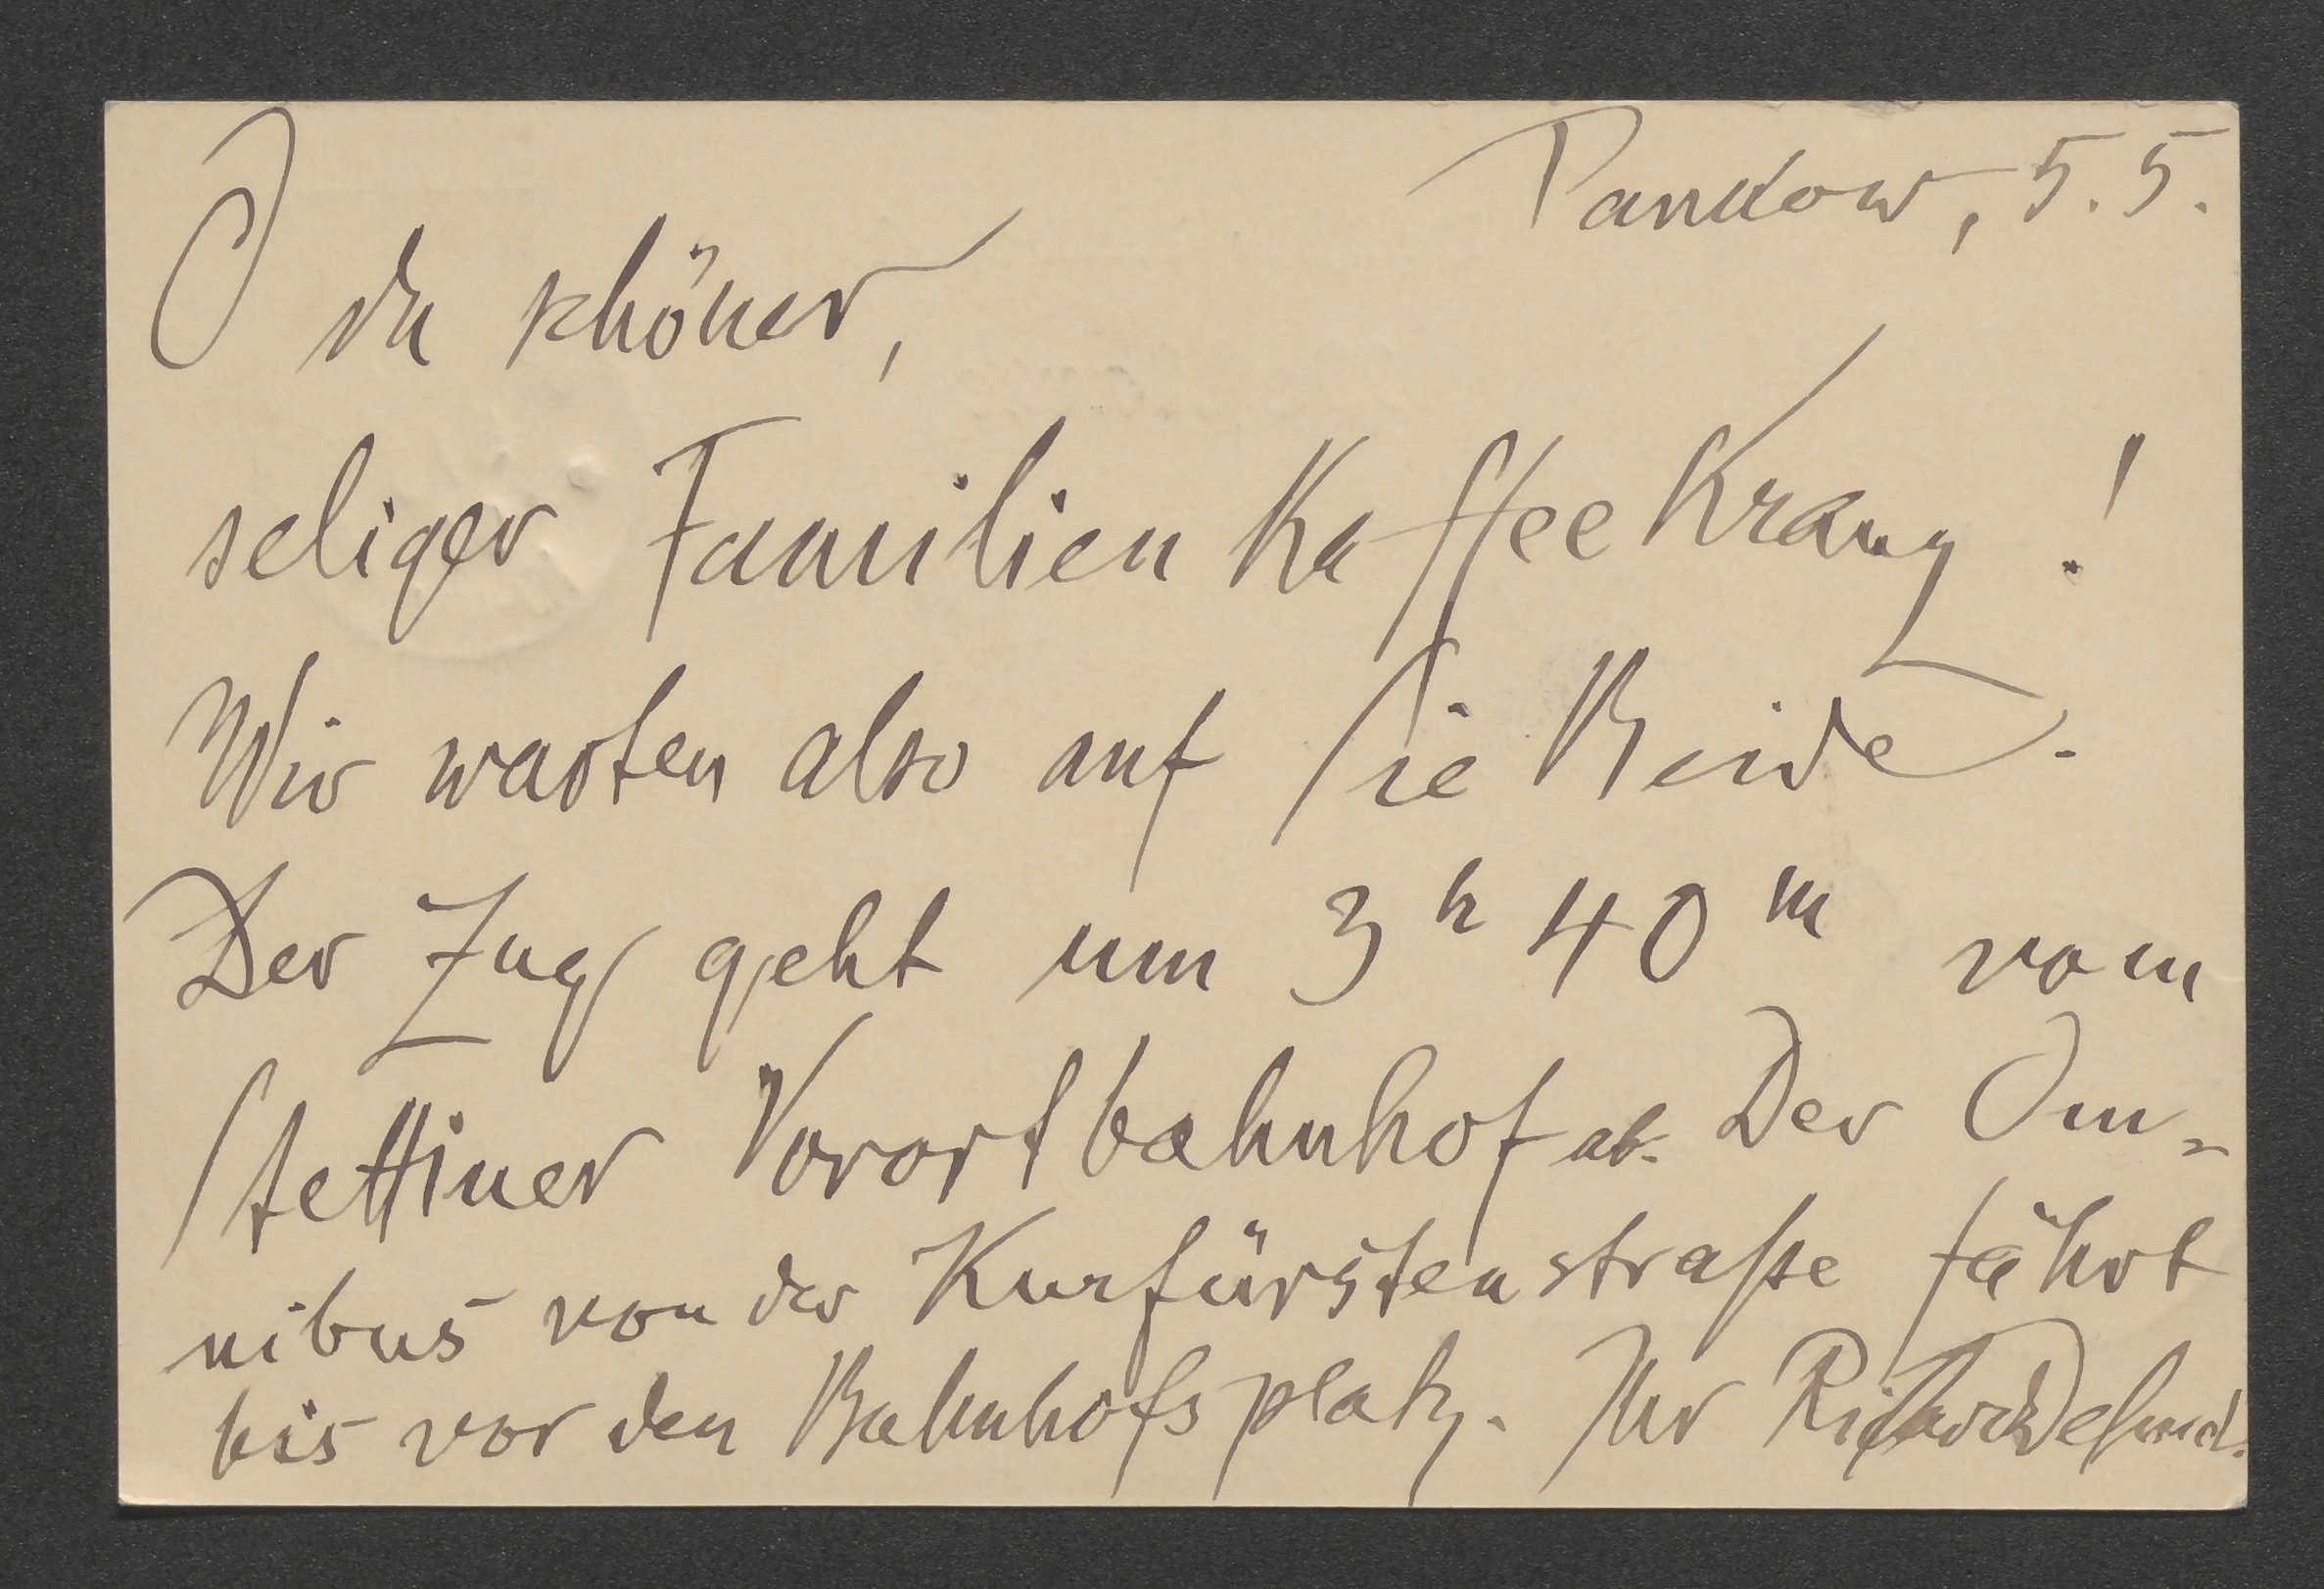 Pankow, 5.5.
O du schöner,
seliger FamilienKaffeeKranz!
Wir warten also auf Sie Beide.
Der Zug geht um 3 h 40 m vom
Stettiner Vorortbahnhof ab. Der Om-
nibus von der Kurfürstenstraße fährt
bis vor den Bahnhofsplatz. Ihr Richard Dehmel.